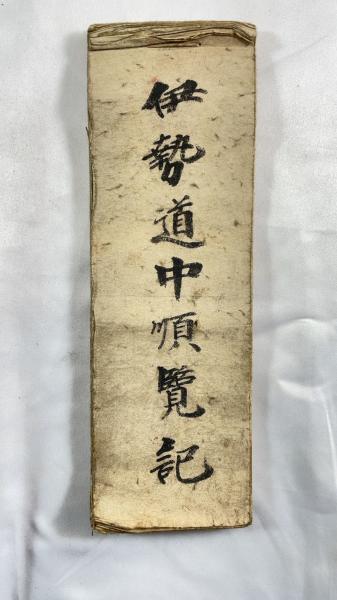 伊勢道中順覽記